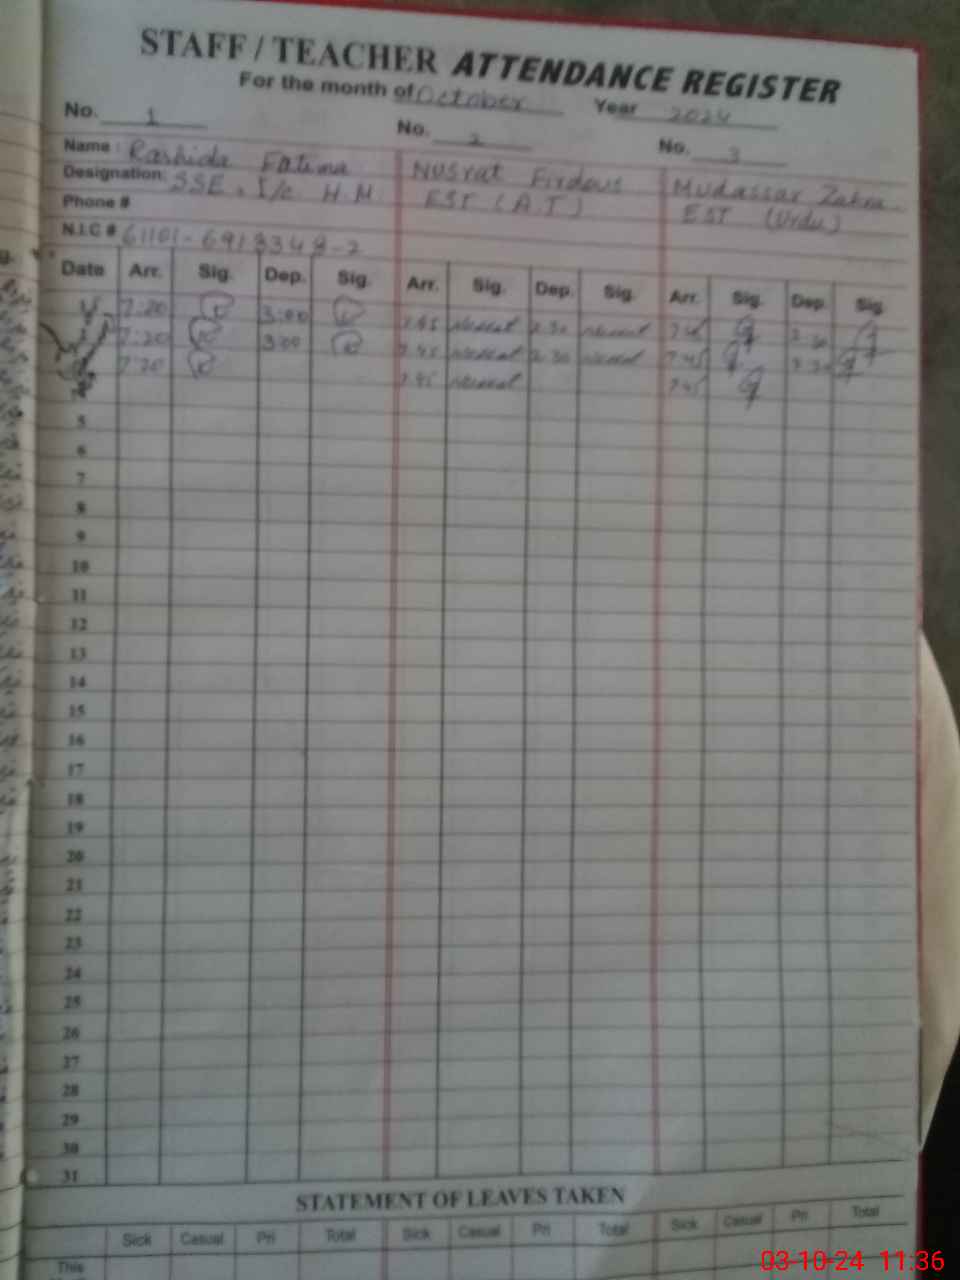 STAFF / TEACHER ATTENDANCE REGISTER
For the month of October Year 2024
No. 1 No. 2 No. 3
Name : Rashida Fatima Nusrat Firdous Mudassar Zahra
Designation: SSE, I/c H.M EST (A.T) EST (Urdu)
Phone #
N.I.C # 61101-6913348-2
Date Arr. Sig. Dep. Sig. Arr. Sig. Dep. Sig. Arr. Sig. Dep. Sig
7:20 3:00 7.45 Nusrat 2.30 Nusrat 7.45 2.30
7:20 3:00 7.45 Nusrat 2.30 Nusrat 7.45 2.30
7:20 7.45 Nusrat 7.45
5
6
7
8
9
10
11
12
13
14
15
16
17
18
19
20
21
22
23
24
25
26
27
28
29
30
31
STATEMENT OF LEAVES TAKEN
Sick Casual Pri Total Sick Casual Pri Total Sick Casual Pri Total
This
03-10-24 11:36